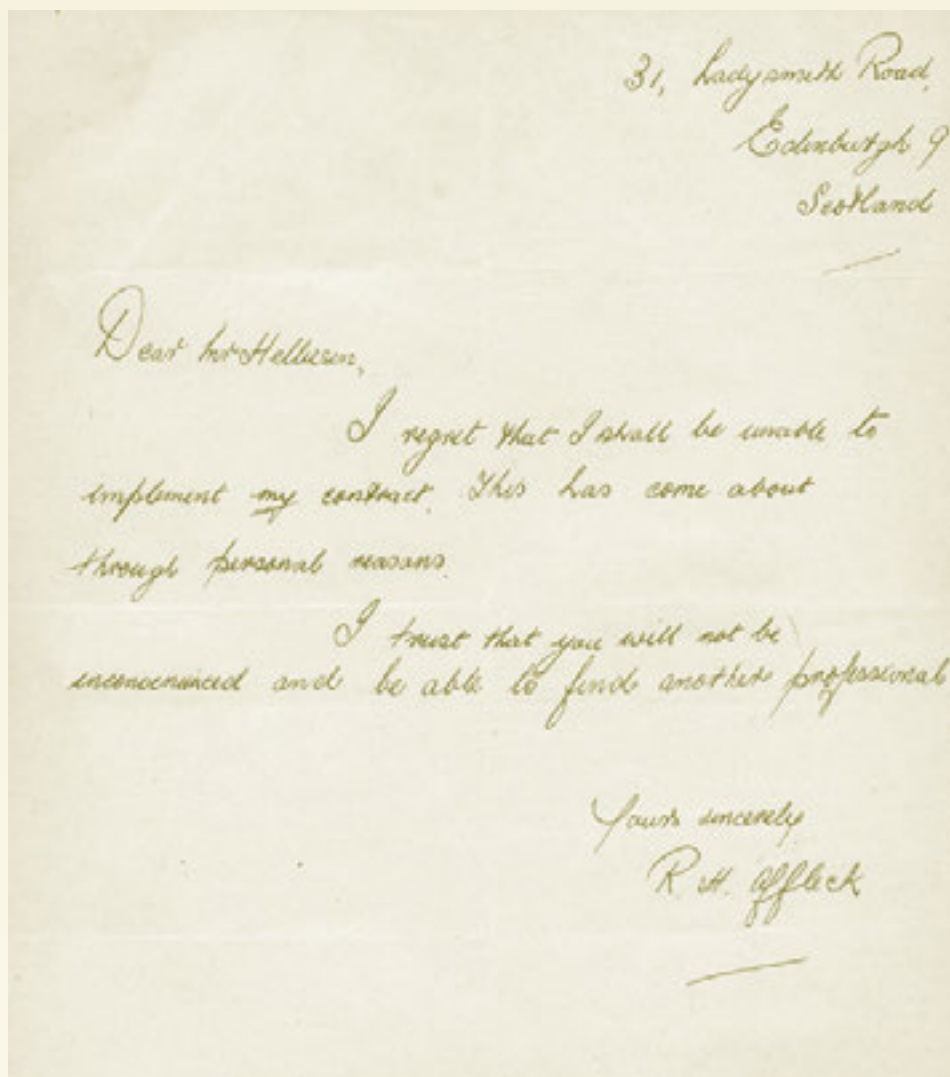 31, Ladysmith Road,
Edinburgh 9
Scotland
Dear Mr Helliesen,
I regret that I shall be unable to
implement my contract. This has come about
through personal reasons.
I trust that you will not be
and be able to find another professional
Yours sincerely
R. H. Affleck